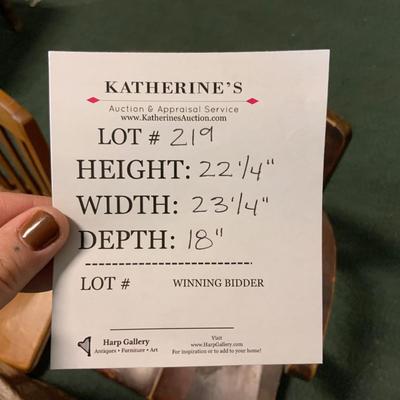 KATHERINE'S
Auction & Appraisal Service
www.KatherinesAuction.com
LOT # 219
HEIGHT: 22 1/4"
WIDTH: 23 1/4"
DEPTH: 18"
LOT # WINNING BIDDER
Harp Gallery
Antiques • Furniture • Art
Visit
www.HarpGallery.com
For inspiration or to add to your home!